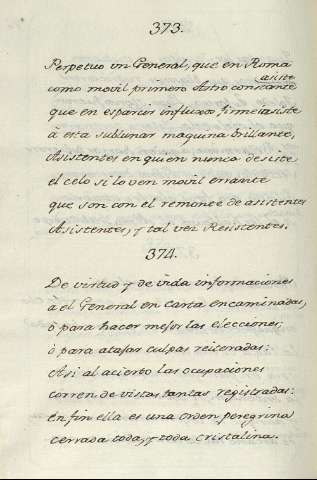 373.
Perpetuo vn General, que en Roma
asiste
como movil primero Astro constante
que en esparcir influxos firme
à esta sublunar maquina brillante,
Asistentes en quien nunca desiste
el celo si lo ven movil errante
que son con el remonte de asistentes
Asistentes, y tal vez Resistentes.
374.
De virtud y de vida informaciones
à el General en Carta encaminadas,
ò para hacer mejor las elecciones;
ò para atajar culpas reiteradas:
Asi al acierto las ocupaciones
corren de vistas tantas registradas:
en fin ella es una orden peregrina
cerrada toda, y toda cristalina.